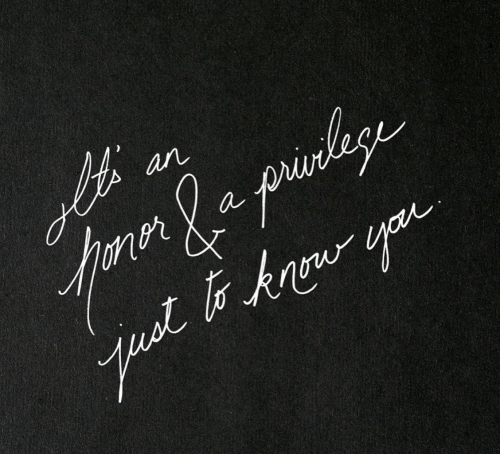 It's an
honor & a privilege
just to know you.